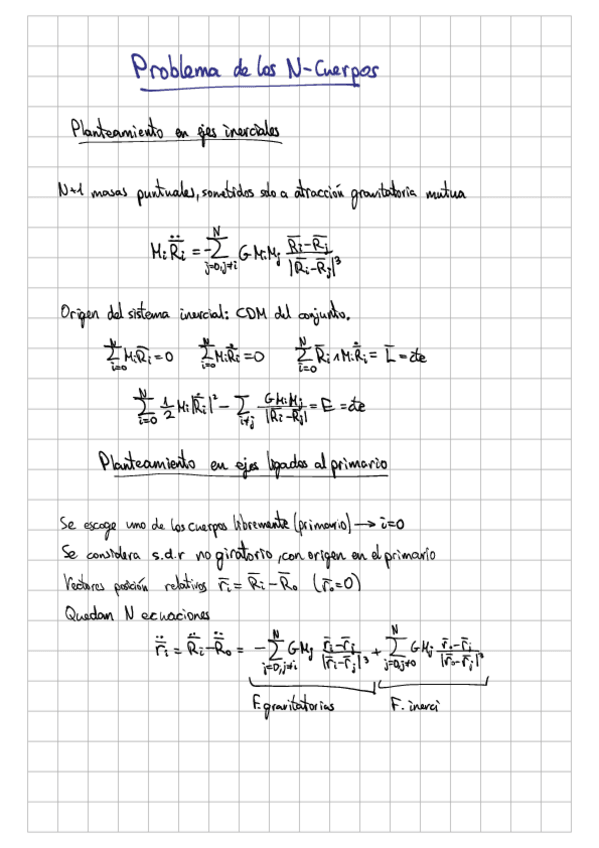 Problema de los N-Cuerpos
Planteamiento en ejes inerciales
N+1 masas puntuales, sometidos solo a atracción gravitatoria mutua
M_i R̈_i = -∑_{j=0, j≠i}^{N} G M_i M_j (R̄_i - R̄_j)/|R̄_i - R̄_j|³
Origen del sistema inercial: CDM del conjunto.
∑_{i=0}^{N} M_i R̄_i = 0   ∑_{i=0}^{N} M_i Ṙ_i = 0   ∑_{i=0}^{N} R̄_i ∧ M_i Ṙ_i = L̄ = cte
∑_{i=0}^{N} 1/2 M_i |Ṙ_i|² - ∑_{i≠j} G M_i M_j/|R̄_i - R̄_j| = E = cte
Planteamiento en ejes ligados al primario
Se escoge uno de los cuerpos libremente (primario) → i=0
Se considera s.d.r no giratorio, con origen en el primario
Vectores posición relativos r̄_i = R̄_i - R̄_0 (r̄_0 = 0)
Quedan N ecuaciones
r̈_i = R̈_i - R̈_0 = -∑_{j=0, j≠i}^{N} G M_j (r̄_i - r̄_j)/|r̄_i - r̄_j|³ + ∑_{j=0, j≠0}^{N} G M_j (r̄_0 - r̄_j)/|r̄_0 - r̄_j|³
F. gravitatorias   F. inerci